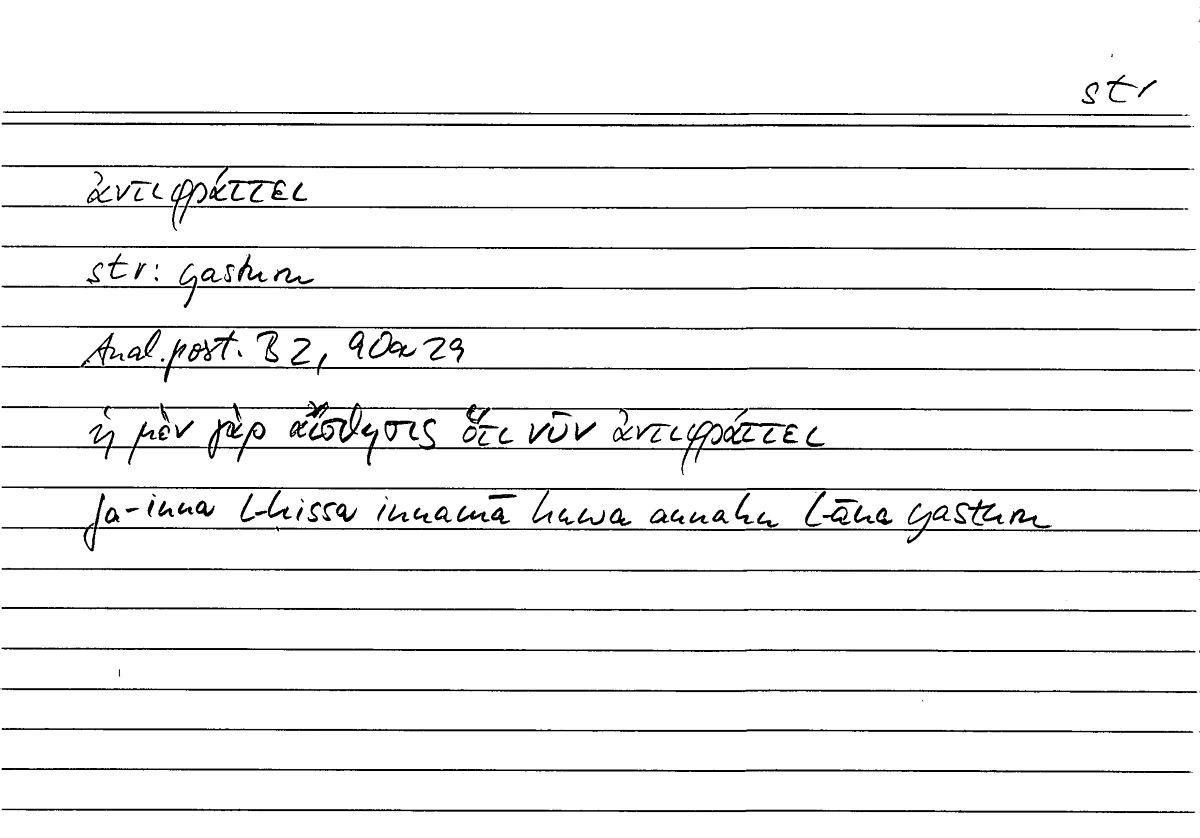 str
ἀντιφράττει
str: yasturu
Anal. post. B 2, 90a 29
ἡ μὲν γὰρ αἴσθησις ὅτι νῦν ἀντιφράττει
fa-inna l-ḥissa innamā huwa annahu l-āna yasturu